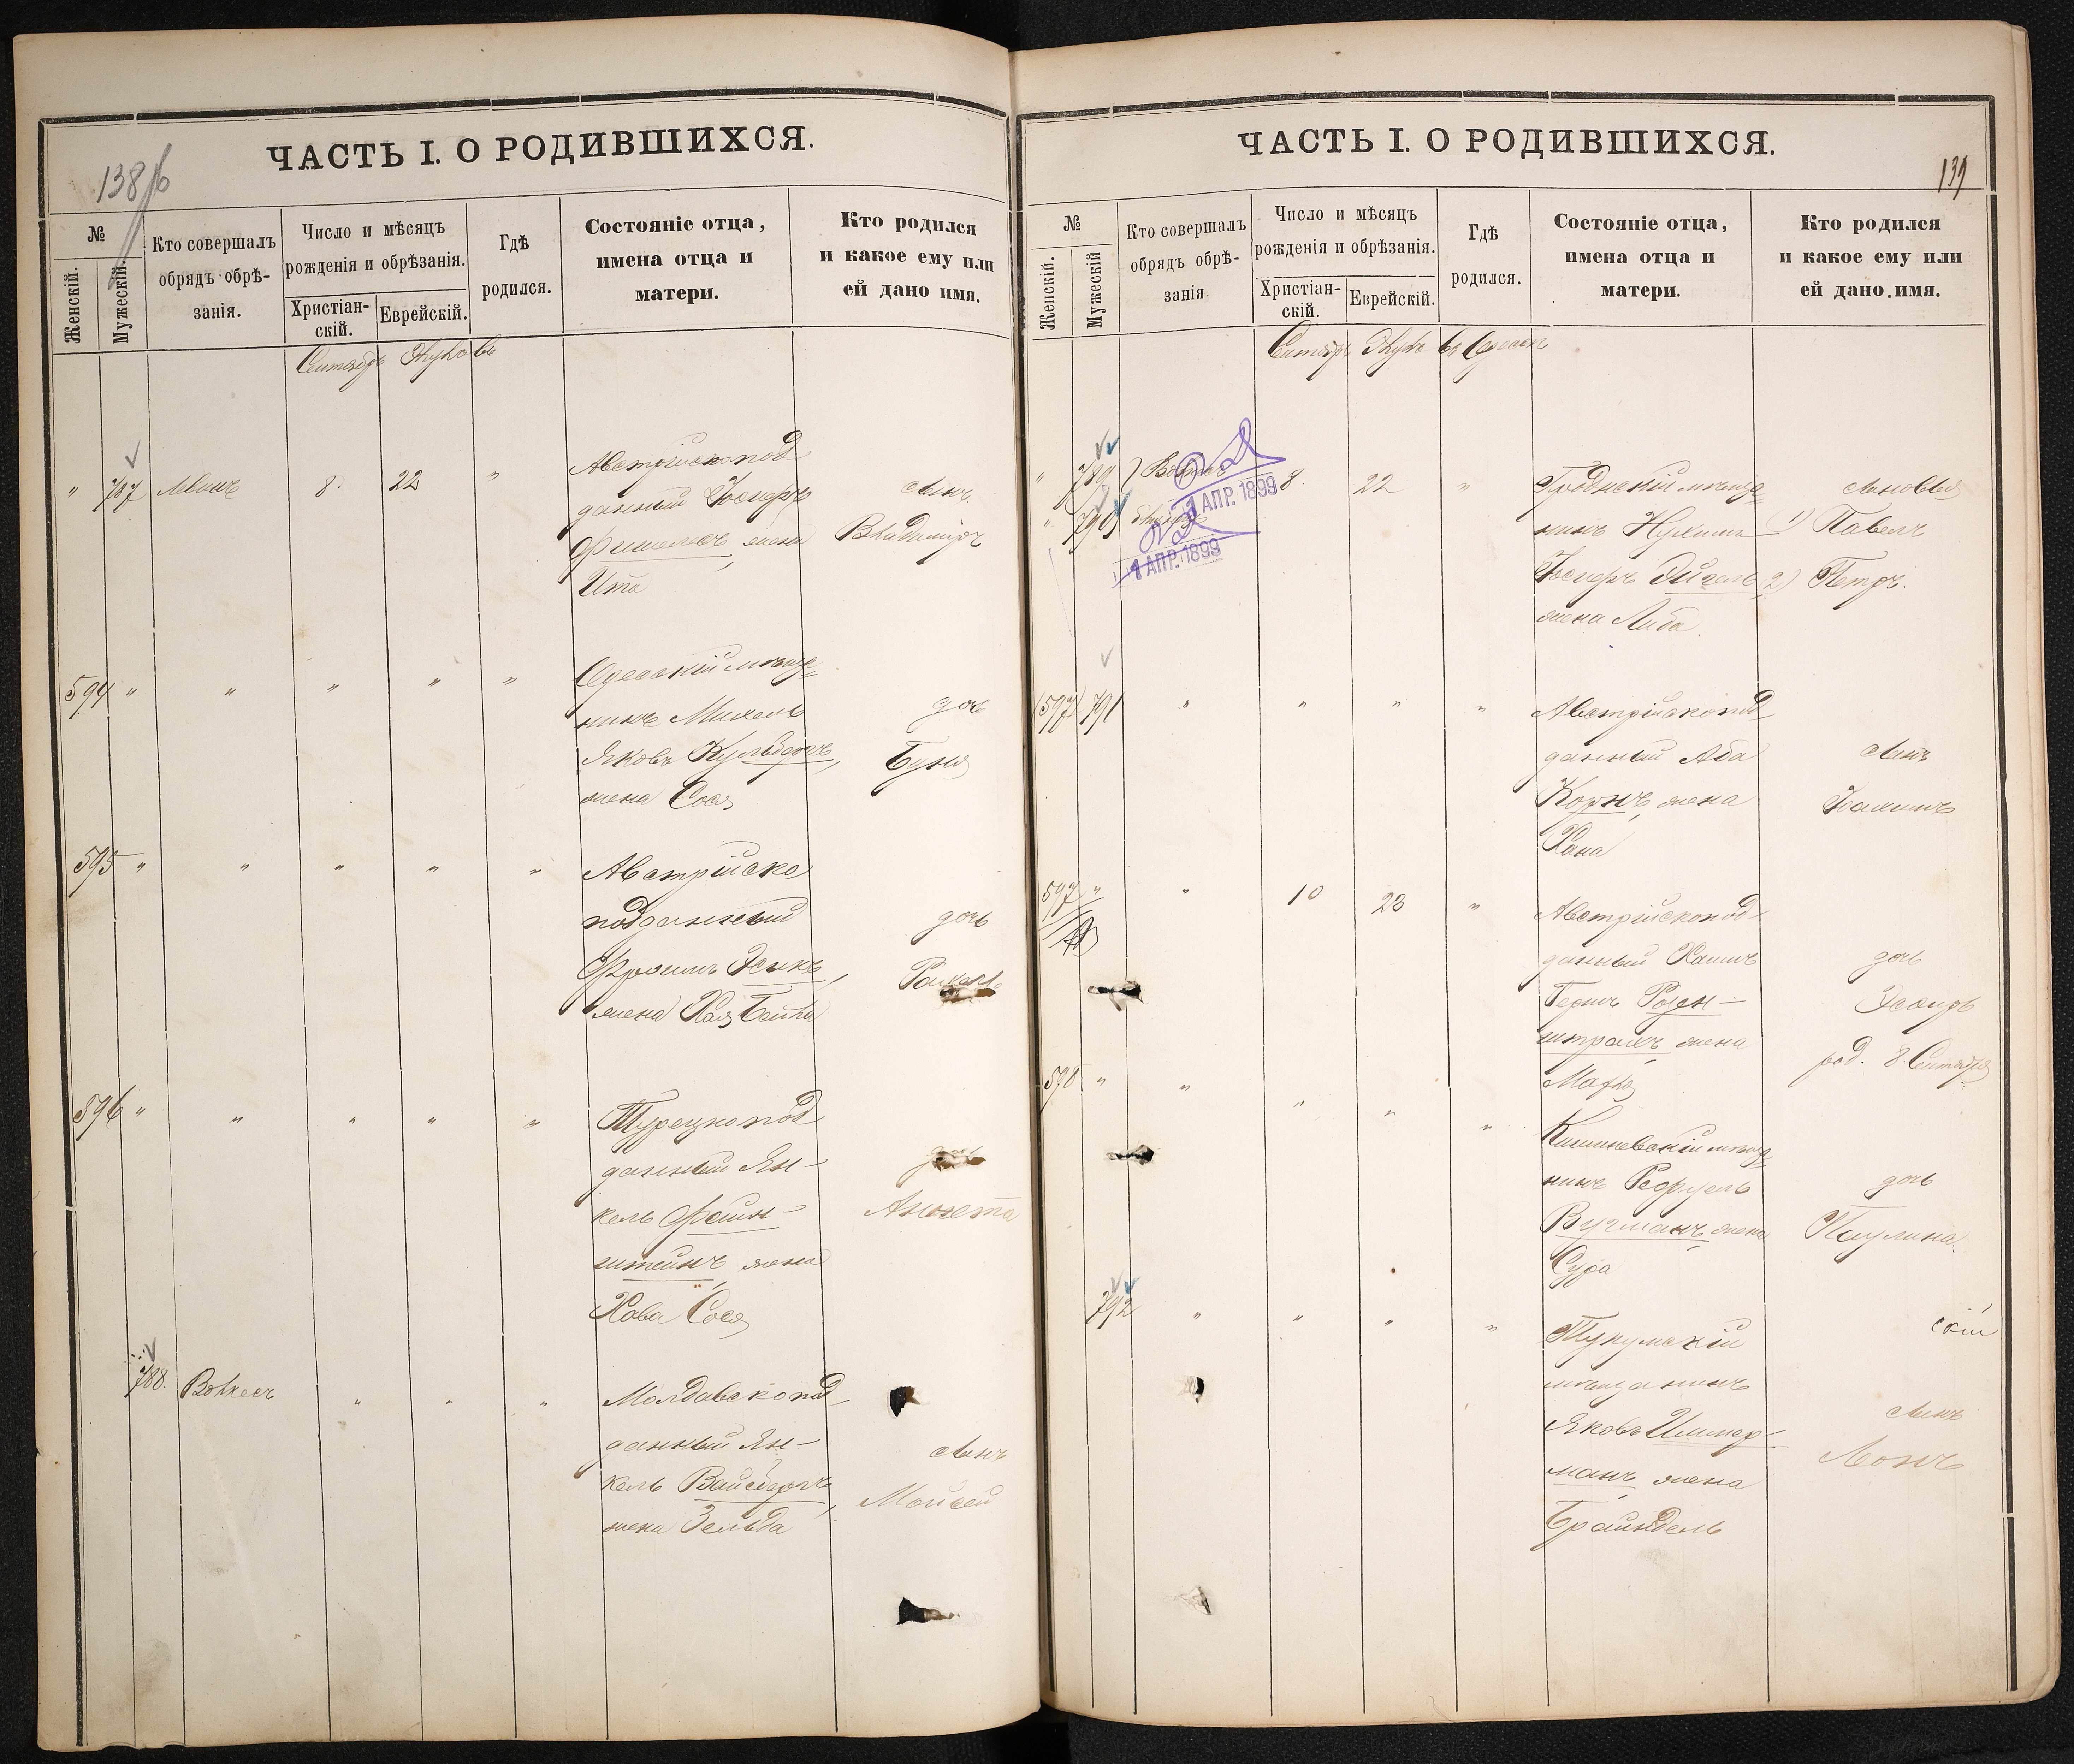 ЧАСТЬ I. О РОДИВШИХСЯ.
138
№
Женскій.
Мужескій.
Кто совершалъ
обрядъ обрѣ-
занія.
Число и мѣсяцъ
рожденія и обрѣзанія.
Христіан-
скій.
Еврейскій.
Гдѣ
родился.
Состояніе отца,
имена отца и
матери.
Кто родился
и какое ему или
ей дано имя.
Сентябрь
" 787 8. 22 "
Австрійскопод
данный Іосифъ
жена
Ита
сынъ
Владиміръ
594 " " " " "
Одесскій мѣща=
нинъ Михель
Яковъ
жена Сося
дочь
Буня
595 " " " " "
Австрійско
подданный
Фроимъ
жена Хая Бейла
дочь
Рахель
596 " " " " "
Турецкопод
данный Ян-
кель Файн-
штейнъ, жена
Хава Сося
дочь
Анюта
788. " " "
Молдавскопод
данный Ян-
кель Вайсбергъ,
жена Зельда
сынъ
Мойсей
ЧАСТЬ I. О РОДИВШИХСЯ.
139
№
Женскій.
Мужескій
Кто совершалъ
обрядъ обрѣ-
занія
Число и мѣсяцъ
рожденія и обрѣзанія.
Христіан-
скій.
Еврейскій.
Гдѣ
родился.
Состояніе отца,
имена отца и
матери.
Кто родился
и какое ему или
ей дано имя.
Сентябрь въ Одессѣ
" 789 8. 22 "
" 790
1 АПР. 1899
1 АПР. 1899
Гродненскій мѣща=
нинъ Нухимъ
Іосифъ
жена Либа
сыновья
1) Павелъ
2) Петръ.
597 791 " " " "
Австрійскопод
данный Аба
Корнъ, жена
Хана
сынъ
Іоахимъ
597 " " 10 23 "
Австрійскопод-
данный Хаимъ
Гершъ Розен-
штраухъ жена
дочь
Эсфирь
род. 8. Сентября
598 " " " " "
Кишиневскій мѣща=
нинъ
Вугманъ жена
Сура
дочь
Паулина.
792 " " " "
Тукумскій
мѣщанинъ
Яковъ Циммер-
манъ, жена
Брайндель
скій
сынъ
Леонъ